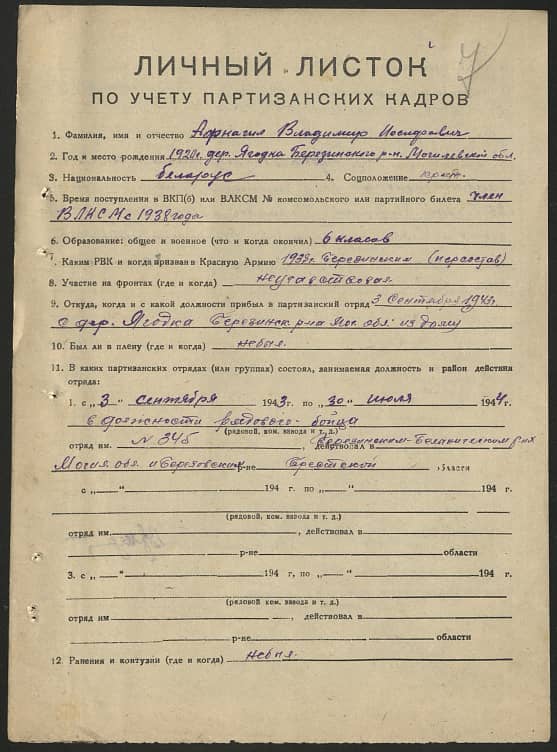 7
ЛИЧНЫЙ ЛИСТОК
ПО УЧЕТУ ПАРТИЗАНСКИХ КАДРОВ
1. Фамилия, имя и отчество Афнагил Владимир Иосифович
2. Год и место рождения 1920г. дер. Ягодка Березинского р-н. Могилевской обл.
3. Национальность беларус 4. Соцположение крест.
5. Время поступления в ВКП(б) или ВЛКСМ № комсомольского или партийного билета член
ВЛКСМ с 1938 года
6. Образование: общее и военное (что и когда окончил) 6 класов
7. Каким РВК и когда призван в Красную Армию Березинским
8. Участие на фронтах (где и когда) неучавствовал
9. Откуда, когда и с какой должности прибыл в партизанский отряд 3 Сентября 1943г
с дер. Ягодка Березинск р-на Мог. обл. из дому
10. Был ли в плену (где и когда) небыл.
11. В каких партизанских отрядах (или группах) состоял, занимаемая должность и район действия
отряда:
1. с „3“ сентября 1943г. по „30“ июля 1944г.
в должности рядового бойца
(рядовой, ком. взвода и т. д.)
отряд им. N 346, действовал в Березинском р-нах
Могил. обл. и Березовским р-не Брестской области
с „ “ 194 г. по „ “ 194 г.
(рядовой, ком. взвода и т. д.)
отряд им. , действовал в
р-не области
3. с „ “ 194 г, по „ “ 194 г.
(рядовой, ком. взвода и т. д.)
отряд им , действовал в
р-не области
12. Ранения и контузии (где и когда) небыл.